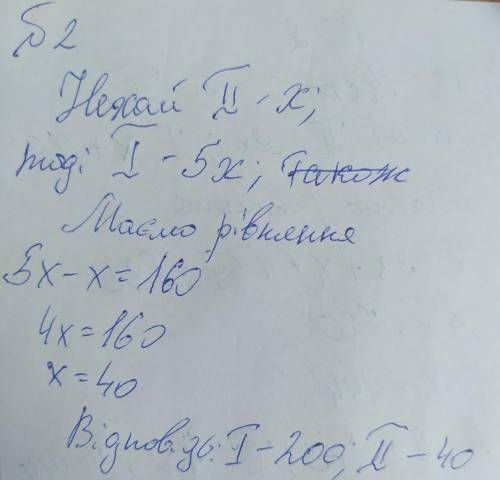 №2
Нехай II - х;
тоді I - 5х; також
Маємо рівняння
5х - х = 160
4х = 160
х = 40
Відповідь: I - 200; II - 40